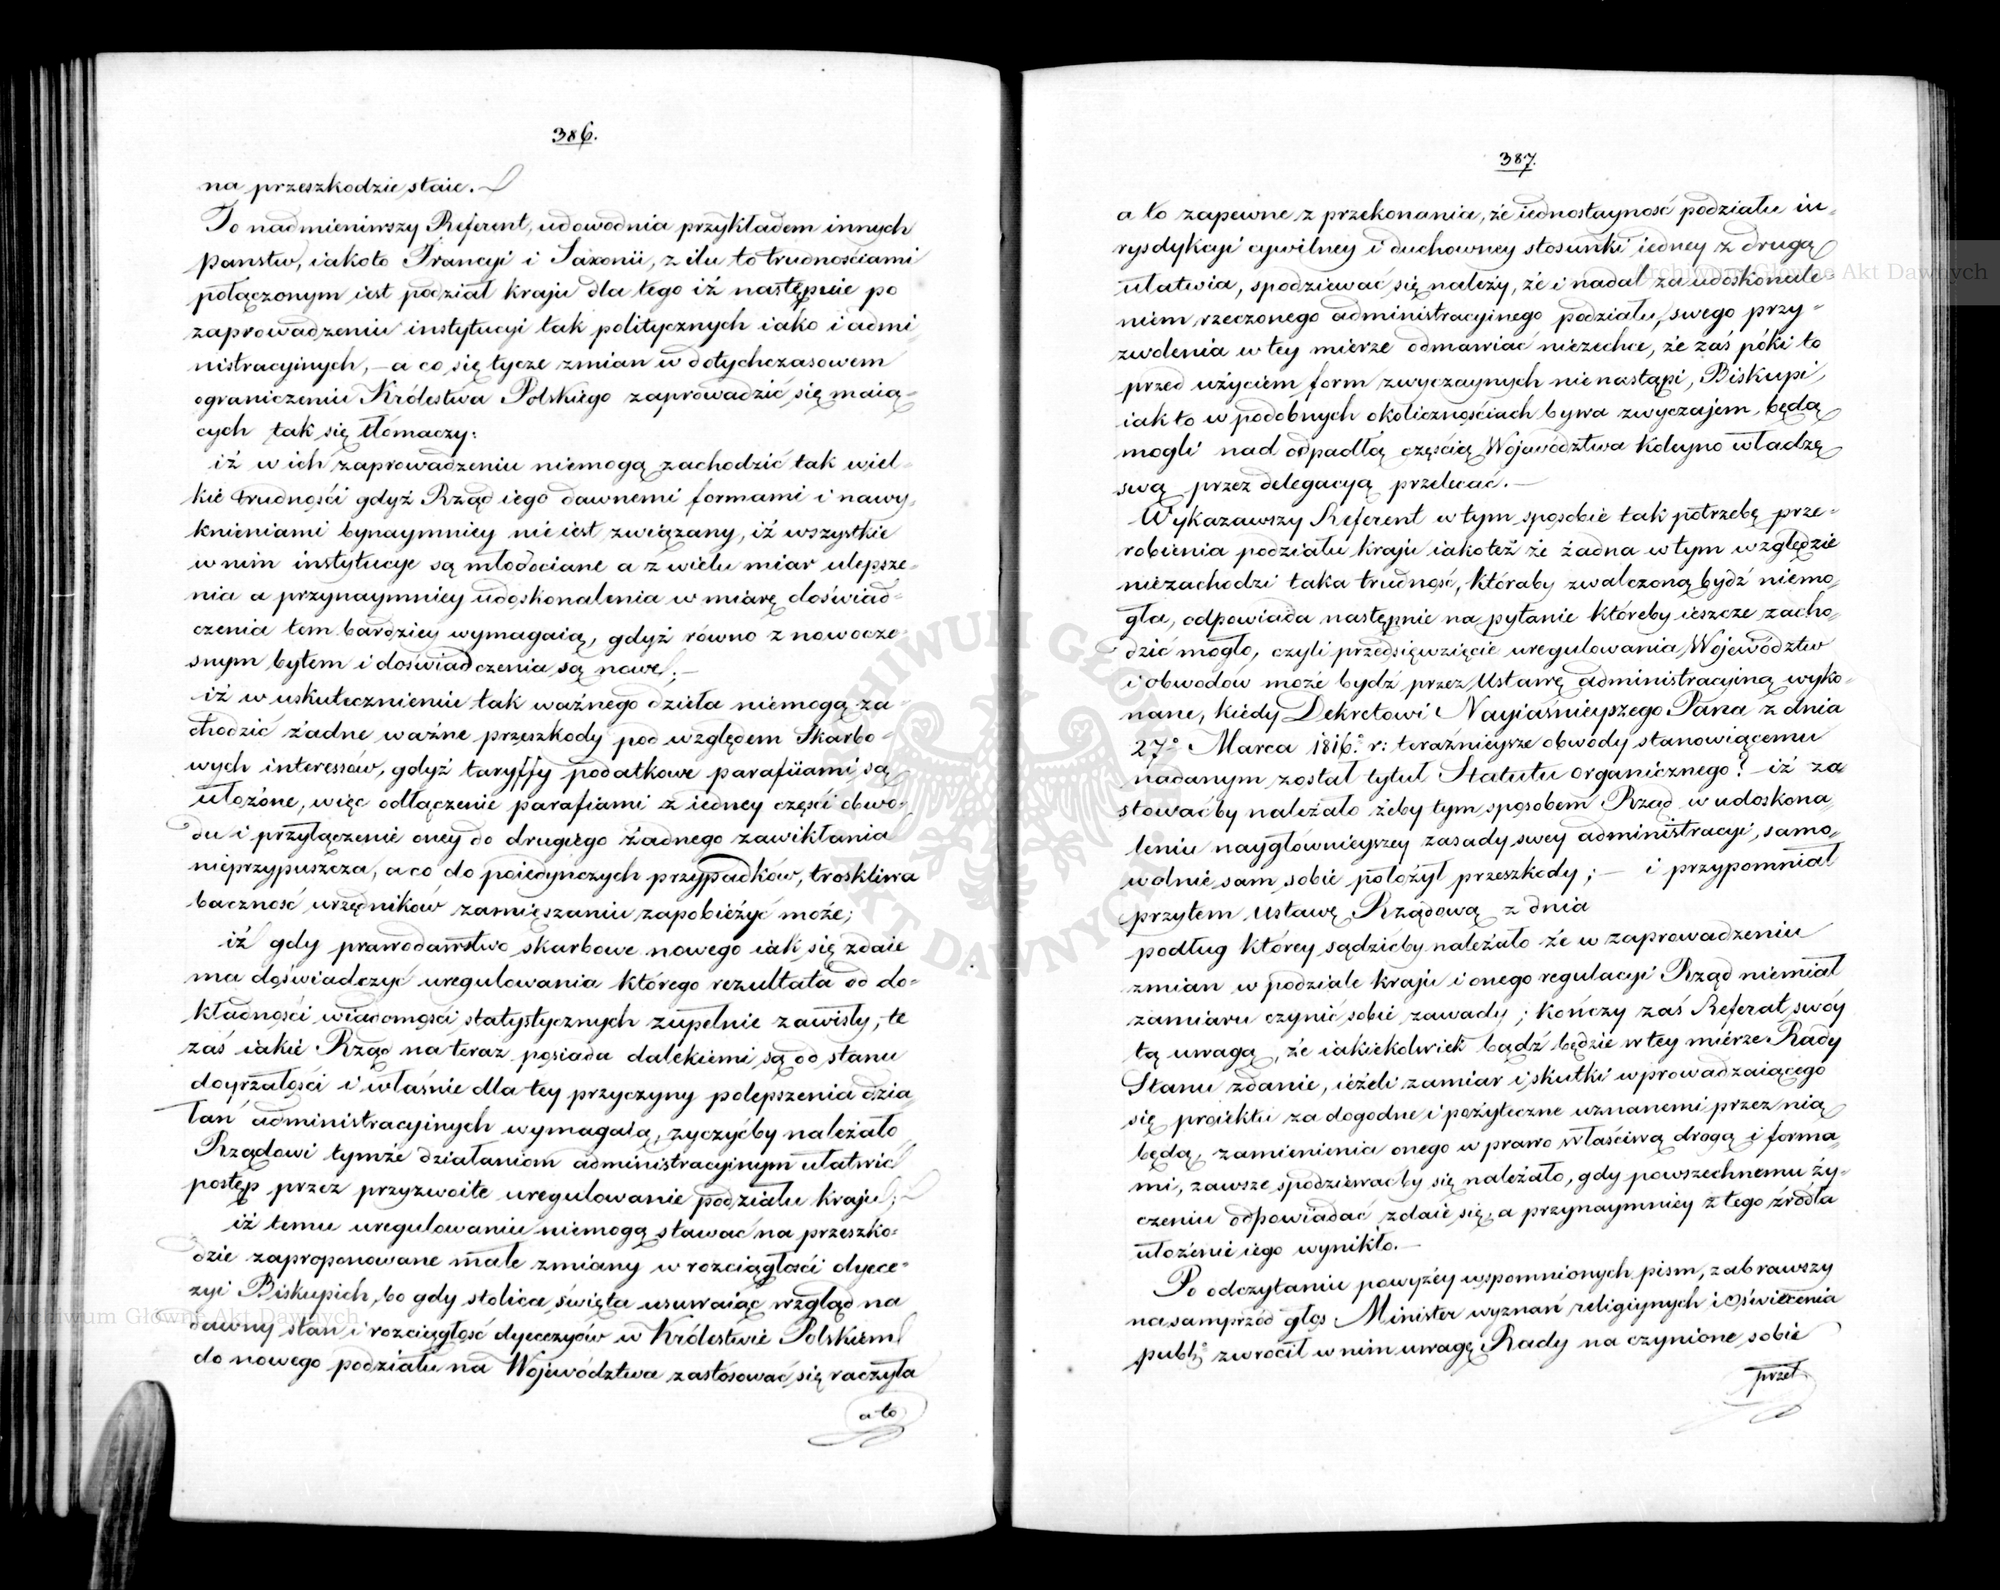 386.
na przeszkodzie staie.
To nadmieniwszy Referent, udowodnia przykładem innych
panstw, iakoto Francyi i Saxonii, z ilu to trudnościami
połączonym iest podział kraju dla tego iż następuie po
zaprowadzeniu instytucyi tak politycznych iako i admi
nistracyinych, – a co się tycze zmian w dotychczasowem
ograniczeniu Królestwa Polskiego zaprowadzić się maią-
cych tak się tłomaczy:
iż w ich zaprowadzeniu niemogą zachodzić tak wiel-
kie trudności gdyż Rząd iego dawnemi formami i nawy-
knieniami bynaymniey nie iest związany, iż wszystkie
w nim instytucye są młodociane a z wielu miar ulepsze-
nia a przynaymniey udoskonalenia w miarę doświad-
czenia tem bardziey wymagaią, gdyż równo z nowocze-
snym bytem i doświadczenia są nowe; –
iż w uskutecznieniu tak ważnego dzieła niemogą za-
chodzić żadne ważne przeszkody pod względem Skarbo-
wych interessów, gdyż taryffy podatkowe parafiiami są
ułożone, więc odłączenie parafiami z iedney części obwo-
du i przyłączenie oney do drugiego żadnego zawikłania
nieprzypuszcza, a co do poiedyńczych przypadków, troskliwa
baczność urzędników zamięszaniu zapobieżyć może;
iż gdy prawodawstwo skarbowe nowego iak się zdaie
ma doświadczyć uregulowania którego rezultata od do-
kładności wiadomości statystycznych zupełnie zawisły, te
zaś iakie Rząd na teraz posiada dalekiemi są od stanu
doyrzałości i właśnie dla tey przyczyny polepszenia dzia
łań administracyinych wymagaią, życzyćby należało
Rządowi tymże działaniom administracyinym ułatwić
postęp przez przyzwoite uregulowanie podziału kraju;
iż temu uregulowaniu niemogą stawać na przeszko-
dzie zaproponowane małe zmiany w rozciągłości dyece-
zyi Biskupich, bo gdy stolica święta usuwaiąc wzgląd na
dawny stan i rozciągłość dyecezyów w Królestwie Polskiem
do nowego podziału na Województwa zastósować się raczyła
a to
387.
a to zapewne z przekonania, że iednostayność podziału iu-
rysdykcyi cywilney i duchowney stosunki iedney z drugą
ułatwia, spodziewać się należy, że i nadal za udoskonale-
niem rzeczonego administracyinego podziału, swego przy-
zwolenia w tey mierze odmawiać niezechce, że zaś póki to
przed użyciem form zwyczaynych nie nastąpi, Biskupi,
iak to w podobnych okolicznościach bywa zwyczajem, będą
mogli nad odpadłą częścią Województwa koleyno władzę
swą przez delegacyą przelewać. –
Wykazawszy Referent w tym sposobie tak potrzebę prze-
robienia podziału kraju iakoteż że żadna w tym względzie
niezachodzi taka trudność, któraby zwalczoną bydź niemo-
gła, odpowiada następnie na pytanie któreby ieszcze zacho-
dzić mogło, czyli przedsięwzięcie uregulowania Województw
i obwodów może bydź przez Ustawę administracyiną wyko-
nane, kiedy Dekretowi Nayiaśnieyszego Pana z dnia
27o Marca 1816o r: teraźnieysze obwody stanowiącemu
nadanym został tytuł Statutu organicznego? – iż ża
łowaćby należało żeby tym sposobem Rząd w udoskona
leniu naygłównieyszey zasady swey administracyi, samo-
wolnie sam sobie położył przeszkody; – i przypomniał
przytem Ustawę Rządową z dnia
podług którey sądzićby należało że w zaprowadzeniu
zmian w podziale kraju i onego regulacyi Rząd niemiał
zamiaru czynić sobie zawady; kończy zaś Referat swóy
tą uwagą, że iakiekolwiek bądź będzie w tey mierze Rady
Stanu zdanie, ieżeli zamiar i skutki wprowadzaiącego
się proiektu za dogodne i pożyteczne uznanemi przez nią
będą, zamienienia onego w prawo właściwą drogą i forma-
mi, zawsze spodziewaćby się należało, gdy powszechnemu ży-
czeniu odpowiadać zdaie się, a przynaymniey z tego źródła
ułożenie iego wynikło. –
Po odczytaniu powyżey wspomnionych pism, zabrawszy
nasamprzód głos Minister wyznań religiynych i Oświecenia
publ:o zwrócił w nim uwagę Rady na czynione sobie
przeł
Archiwum Główne Akt Dawnych
Archiwum Główne Akt Dawnych
ARCHIWUM GŁÓWNE AKT DAWNYCH